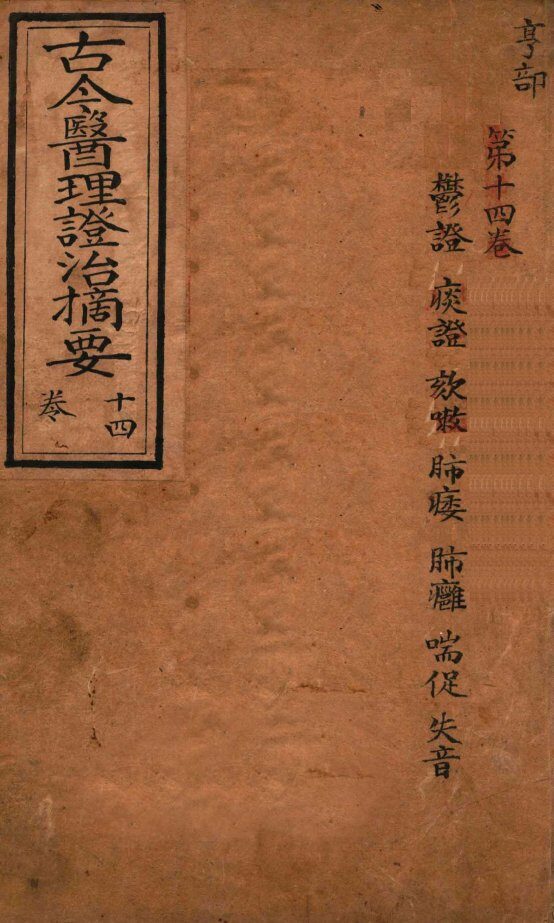 亨部
第十四卷
鬱證 痰證 欬嗽 肺痿 肺癰 喘促 失音
古今醫理證治摘要
十四
卷